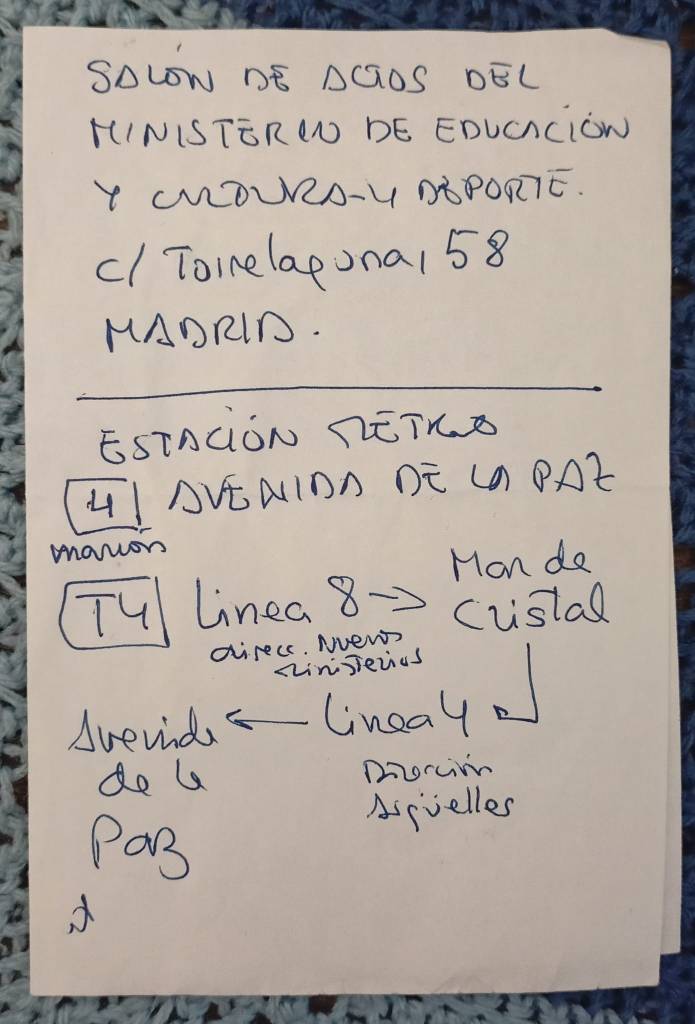 SALÓN DE ACTOS DEL
MINISTERIO DE EDUCACIÓN
Y CULTURA Y DEPORTE.
C/ Torrelaguna, 58
MADRID.
ESTACIÓN METRO
4 AVENIDA DE LA PAZ
marrón
T4 Linea 8 → Mar de Cristal
direcc. Nuevos
Ministerios
Avenida ← Linea 4
de la
Paz
Dirección
Argüelles